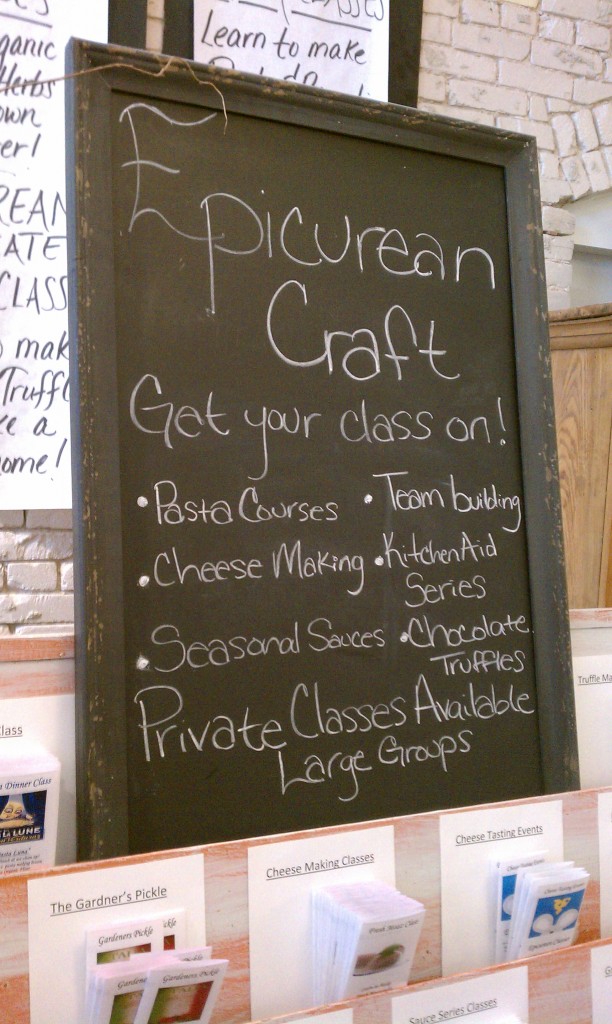 Learn to make
ganic
Herbs
own
er!
REAN
ATE
CLASS
mak
Truffl
ke a
ome!
Epicurean
Craft
Get your class on!
• Pasta Courses
• Team building
• Cheese Making
• KitchenAid
Series
• Seasonal Sauces
• Chocolate
Truffles
Private Classes Available
Large Groups
Truffle Ma
Class
Dinner Class
LUNE
The Gardner's Pickle
Gardeners Pickle
Gardeners Pickle
Cheese Making Classes
Cheese Tasting Events
Sauce Series Classes